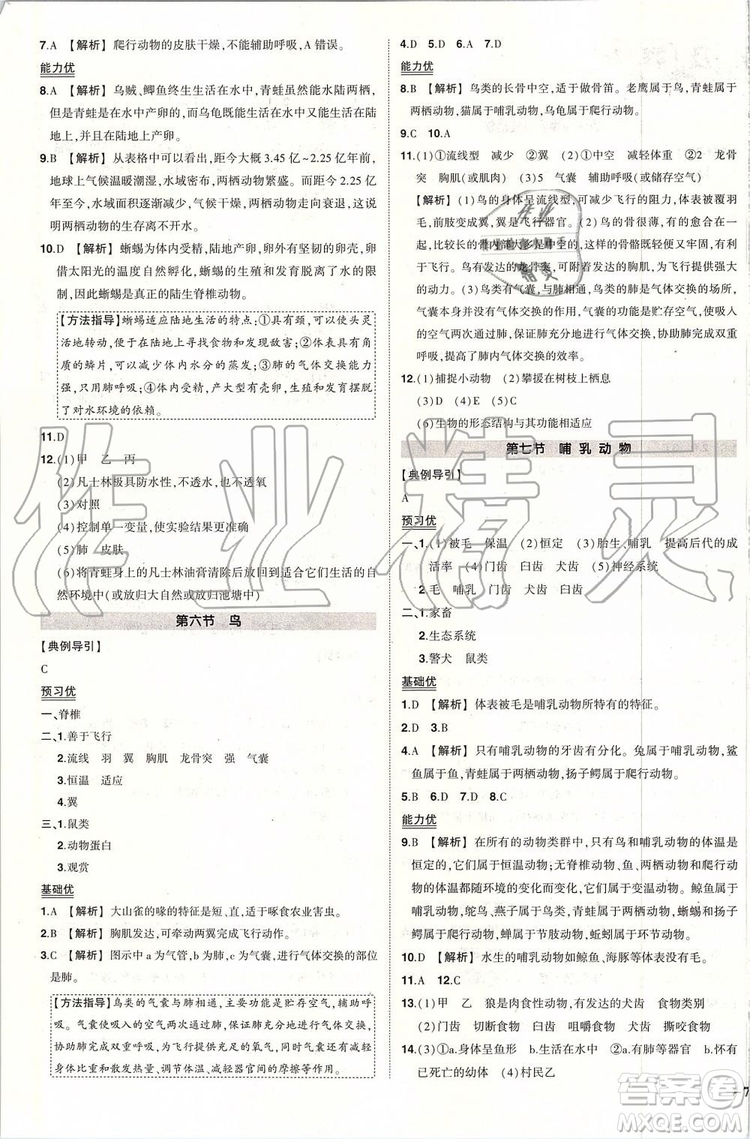 7.A 【解析】爬行动物的皮肤干燥，不能辅助呼吸，A 错误。
能力优
8.A 【解析】乌贼、鲫鱼终生生活在水中，青蛙水陆两栖，但是青蛙在水中产卵，只有乌龟生活在陆地上，并且在陆地上产卵。
9.B 【解析】从表格中可以看出，距今 3.45 亿~2.25 亿年前，地球上气候温暖潮湿，水域密布，两栖动物繁盛。距今 2.25 亿年至今，水域面积逐渐减少，气候干燥，两栖动物走向衰退，这说明两栖动物的生存离不开水。
10.D 【解析】蜥蜴体内受精，陆地产卵，卵外有坚韧的卵壳，卵借太阳光的温度自然孵化，蜥蜴的生殖和发育脱离了水的限制，因此蜥蜴是真正的陆生脊椎动物。
【方法指导】蜥蜴适应陆地生活的特点：①具有颈，可以灵活地转动，便于在陆地上寻找食物和发现敌害；②体表有角质的鳞片，可减少体内水分的蒸发；③肺的气体交换能力强，只用肺呼吸；④体内受精，产大型有壳卵，摆脱了生殖对水环境的依赖。
11.D
12.(1)甲 乙 丙
(2)凡士林极具防水性，不透水，也不透气
(3)对照
(4)控制单一变量，使实验结果更准确
(5)肺 皮肤
(6)将青蛙身上的凡士林油膏清除后放回到适于它们生活的自然环境中(或放归大自然或放归池塘中)
第六节 鸟
【典例导引】
C
预习优
一、脊椎
二、1.善于飞行
2.流线 羽 翼 胸肌 龙骨突 强 气囊
3.恒温 适应
4.翼
三、1.鼠类
2.动物蛋白
3.观赏
基础优
1.A 【解析】大山雀的喙的特征是短、直，适于啄食农业害虫。
2.B 【解析】胸肌发达，可牵动两翼完成飞行动作。
3.C 【解析】图示中 a 为气管，b 为肺，c 为气囊，进行气体交换的部位是肺。
【方法指导】鸟类的气囊与肺相通，主要功能是贮存空气，辅助呼吸。气囊使吸入的空气两次通过肺，保证肺充分地进行气体交换，为飞行提供充足的氧气，同时气囊还有散热降温、减轻体重、减轻器官间的摩擦等作用。
4.D 5.D 6.A 7.D
能力优
8.B 【解析】鸟类的长骨中空，适于做骨笛。老鹰属于鸟，青蛙属于两栖动物，猫属于哺乳动物，乌龟属于爬行动物。
9.C 10.A
11.(1)①流线型 减少 ②翼 (2)①中空 减轻体重 ②龙骨突 胸肌(或肌肉) (3)5 气囊 辅助呼吸(或储存空气)
【解析】(1)鸟的身体呈流线型，可减少飞行的阻力，体表被覆羽毛，前肢变成翼，翼是飞行器官。(2)鸟的骨很薄，有的愈合在一起，比较长的骨大都是中空的，鸟的骨骼既轻便又牢固，有利于飞行。鸟有发达的龙骨突，可附着发达的胸肌，提供强大的动力。(3)鸟体内有气囊，可以辅助呼吸，但气体交换的场所是肺，气囊本身并没有气体交换的作用，气囊的功能是贮存空气，使吸入的空气两次通过肺，保证肺充分地进行气体交换，协助肺完成双重呼吸，提高了肺内气体交换的效率。
12.(1)捕捉小动物 (2)攀援在树枝上栖息
(3)D (4)D (5)C
(6)生物的形态结构与其功能相适应
第七节 哺乳动物
【典例导引】
A
预习优
一、1.(1)被毛 保温 (2)恒定 (3)胎生 哺乳 提高后代的成活率 (4)门齿 臼齿 犬齿 (5)神经系统
2.毛 哺乳 门齿 犬齿 臼齿
二、1.家畜
2.生态系统
3.警犬 鼠类
基础优
1.D 【解析】体表被毛是哺乳动物所特有的特征。
2.D 3.B
4.A 【解析】只有哺乳动物的牙齿有分化。兔属于哺乳动物，鲨鱼属于鱼，青蛙属于两栖动物，扬子鳄属于爬行动物。
5.B 6.D 7.D 8.C
能力优
9.B 【解析】在所有的动物类群中，只有鸟和哺乳动物的体温是恒定的，它们属于恒温动物；无脊椎动物、鱼、两栖动物和爬行动物的体温都随环境的变化而变化，它们属于变温动物。鲸鱼属于哺乳动物，鸵鸟、燕子属于鸟类，青蛙属于两栖动物，蜥蜴和扬子鳄属于爬行动物，蝉属于节肢动物，蚯蚓属于环节动物。
10.D 【解析】水生的哺乳动物如鲸鱼、海豚等体表无毛。
11.A 12.C
13.(1)甲 乙 狼是肉食性动物，有发达的犬齿 食物类别
(2)门齿 切断食物 臼齿 磨碎食物 犬齿 撕咬食物
14.(3)①a.身体呈鱼形 b.生活在水中 ②a.有肺 b.怀有已死亡的幼体 (4)村民乙
作业精灵
答案圈
MXQE.COM